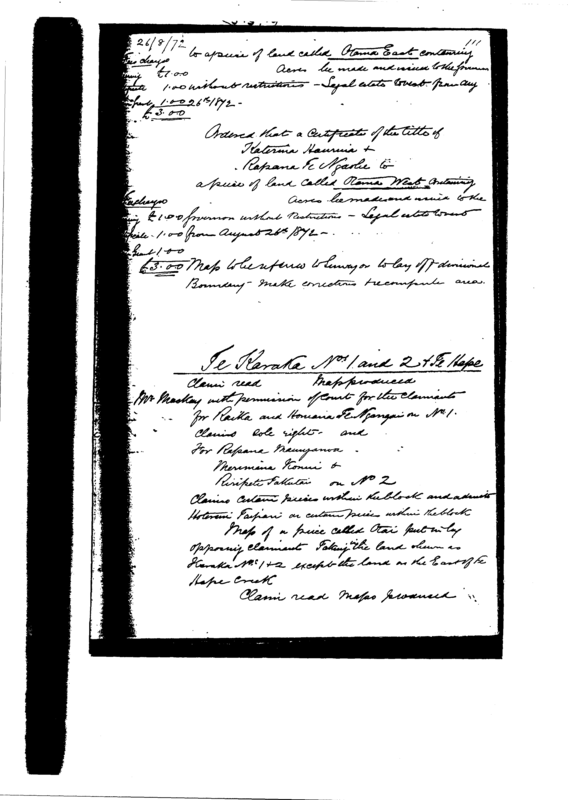 26/8/72 111
to a piece of land called Otama East containing
£1.00 Acres be made and issued to the
1.00 without restrictions - Legal estate to vest from Aug
1.00 26th 1872 -
£3.00
Ordered that a Certificate of the title of
Katerina Hauruia +
Rapana Te
a piece of land called Otama West Containing
Acres be made and issued to the
£1.00 Governor without Restrictions - Legal estate to vest
1.00 from August 26th 1872 -
1.00
£3.00 Map to be returned to Surveyor to lay off divisional
Boundary - make corrections + recompute area.
Te Karaka Nos 1 and 2 + Te Hape
Claim read Map produced
Mr Mackay with permission of Court for the claimants
for Raika and Honana Te on No 1.
Claims sole right - and
For Rapana Maunganoa
Merimana Konui &
Riripeti on No 2
Claims certain pieces within the block and admits
Hotereni Taipari on certain pieces within the block
Map of a piece called Otai put in by
opposing claimants Taking in the land shown as
Karaka Nos 1+2 except the land on the East of Te
Hape Creek
Claim read Maps produced